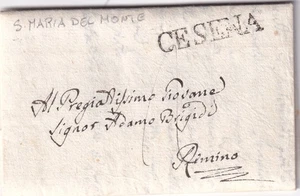 S. MARIA DEL MONTE
CESENA
Al Pregiatissimo Giovane
Signor Adamo Brigidi
Rimino